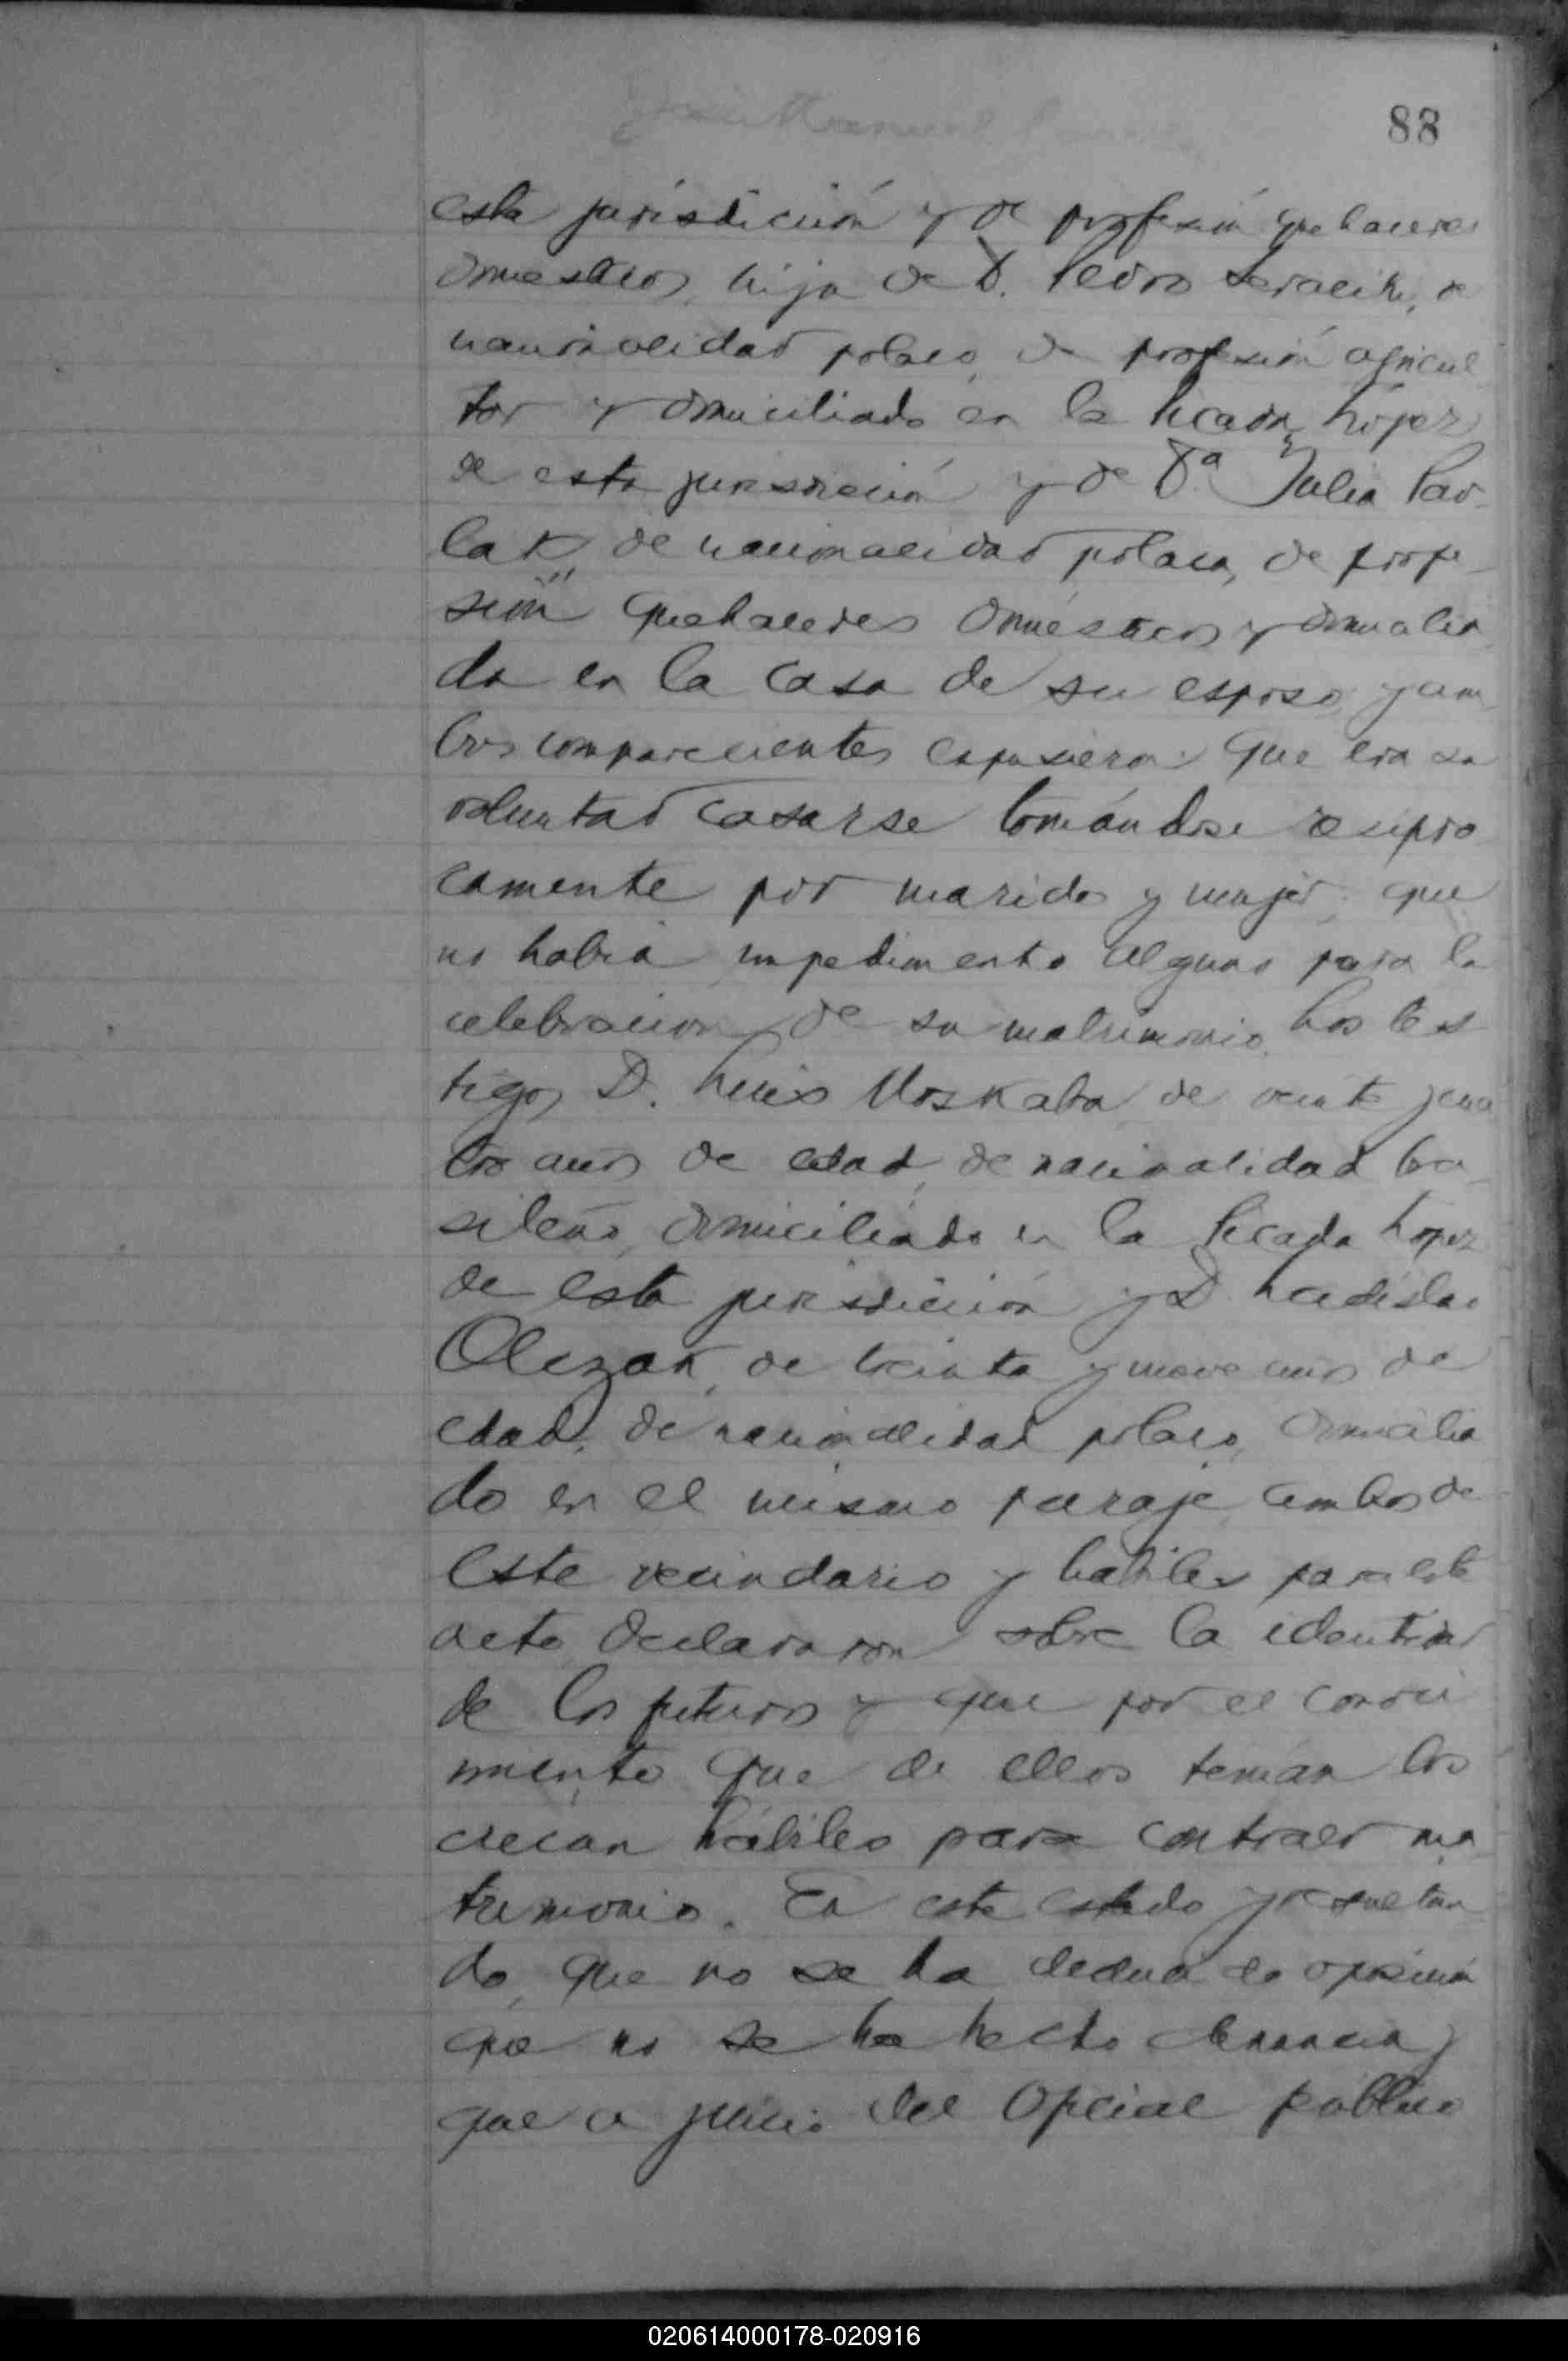 88
esta jurisdicción y de profesión quehaceres
domesticos, hija de D. Pedro de
nacionalidad polaco, de profesión agricul
tor y domiciliado en la Picada López
de esta jurisdicción y de Dª Julia Pav-
lak, de nacionalidad polaca, de profe-
sión quehaceres domésticos y domicilia
da en la casa de su esposo y am
bos comparecientes expusieron: Que era su
voluntad casarse tomándose recipro
camente por marido y mujer, que
no habia impedimento alguno para la
celebracion de su matrimonio. Los tes
tigos D. Luis Moskaba de veinte y cua
tro años de edad, de nacionalidad bra-
sileño, domiciliado en la Picada Lopez
de esta jurisdicción y D. Ladislao
Olezak, de treinta y nueve años de
edad, de nacionalidad polaco, domicilia
do en el mismo paraje, ambos de
este vecindario y habiles para este
acto, declararon sobre la identidad
de los futuros y que por el conoci
miento que de ellos tenían los
creían hábiles para contraer ma
trimonio. En este estado y resultan
do, que no se ha deducido oposición
que no se ha hecho denuncia y
que a juicio del Oficial Público
020614000178-020916